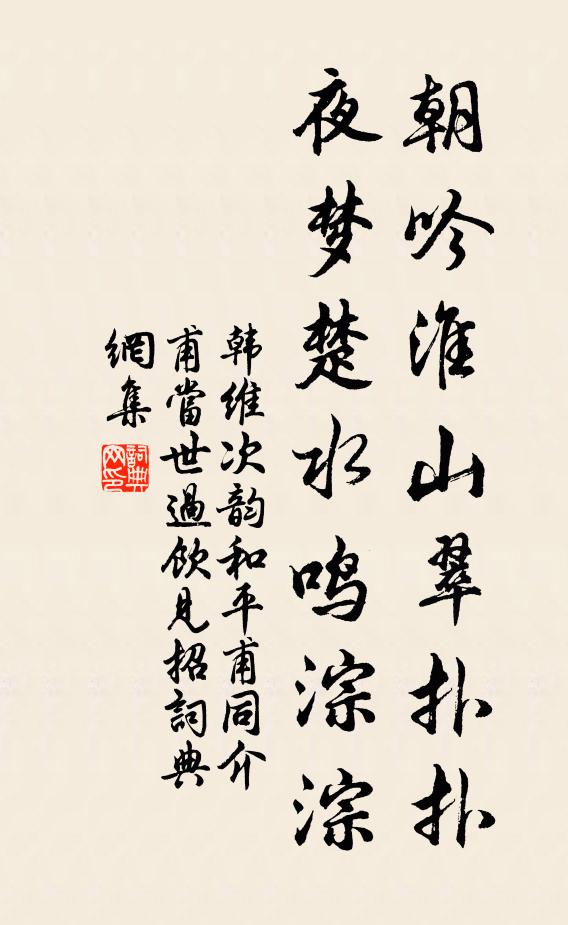 朝吟淮山翠扑扑
夜梦楚水鸣淙淙
韩维次韵和平甫同介
甫當世過飲見招詞典
網集
詞典
网印